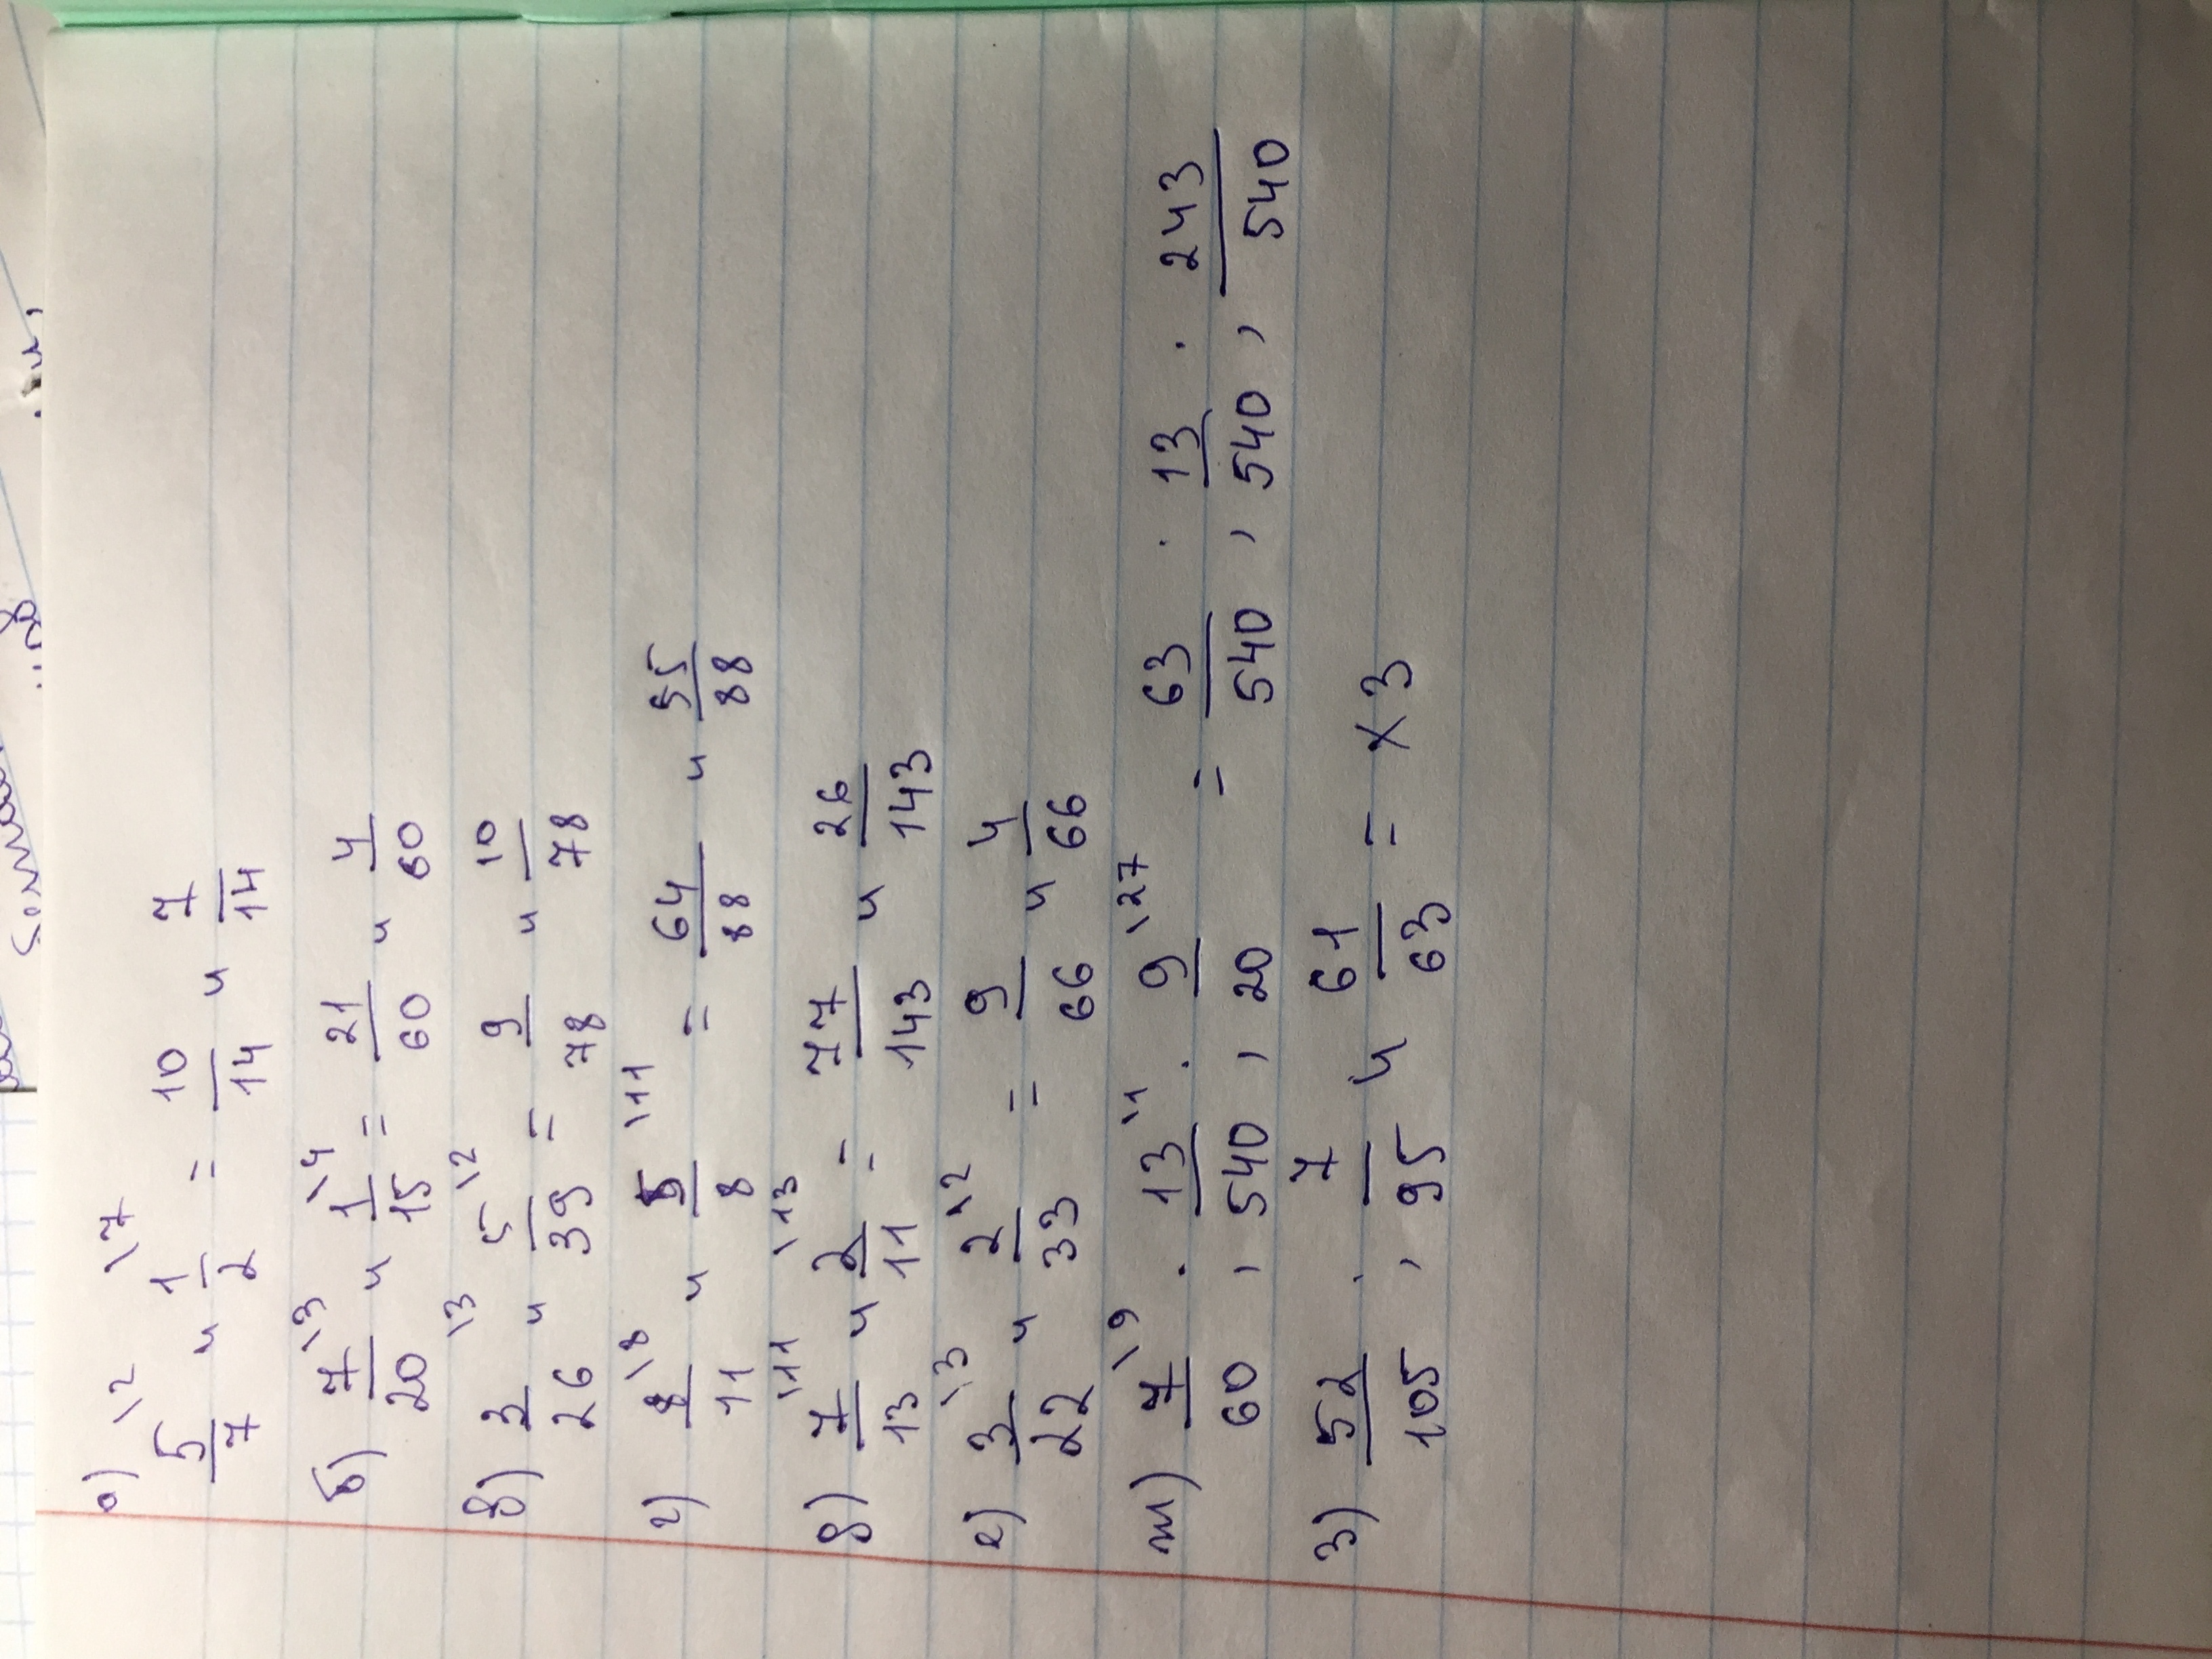 а) 5/7 \2 и 1/2 \7 = 10/14 и 7/14
б) 7/20 \3 и 1/15 \4 = 21/60 и 4/60
в) 3/26 \3 и 5/39 \2 = 9/78 и 10/78
г) 8/11 \8 и 5/8 \11 = 64/88 и 55/88
д) 7/13 \11 и 2/11 \13 = 77/143 и 26/143
е) 3/22 \3 и 2/33 \2 = 9/66 и 4/66
ж) 7/60 \9 ; 13/540 \1 ; 9/20 \27 = 63/540 ; 13/540 ; 243/540
з) 52/105 ; 7/95 и 61/63 = х3